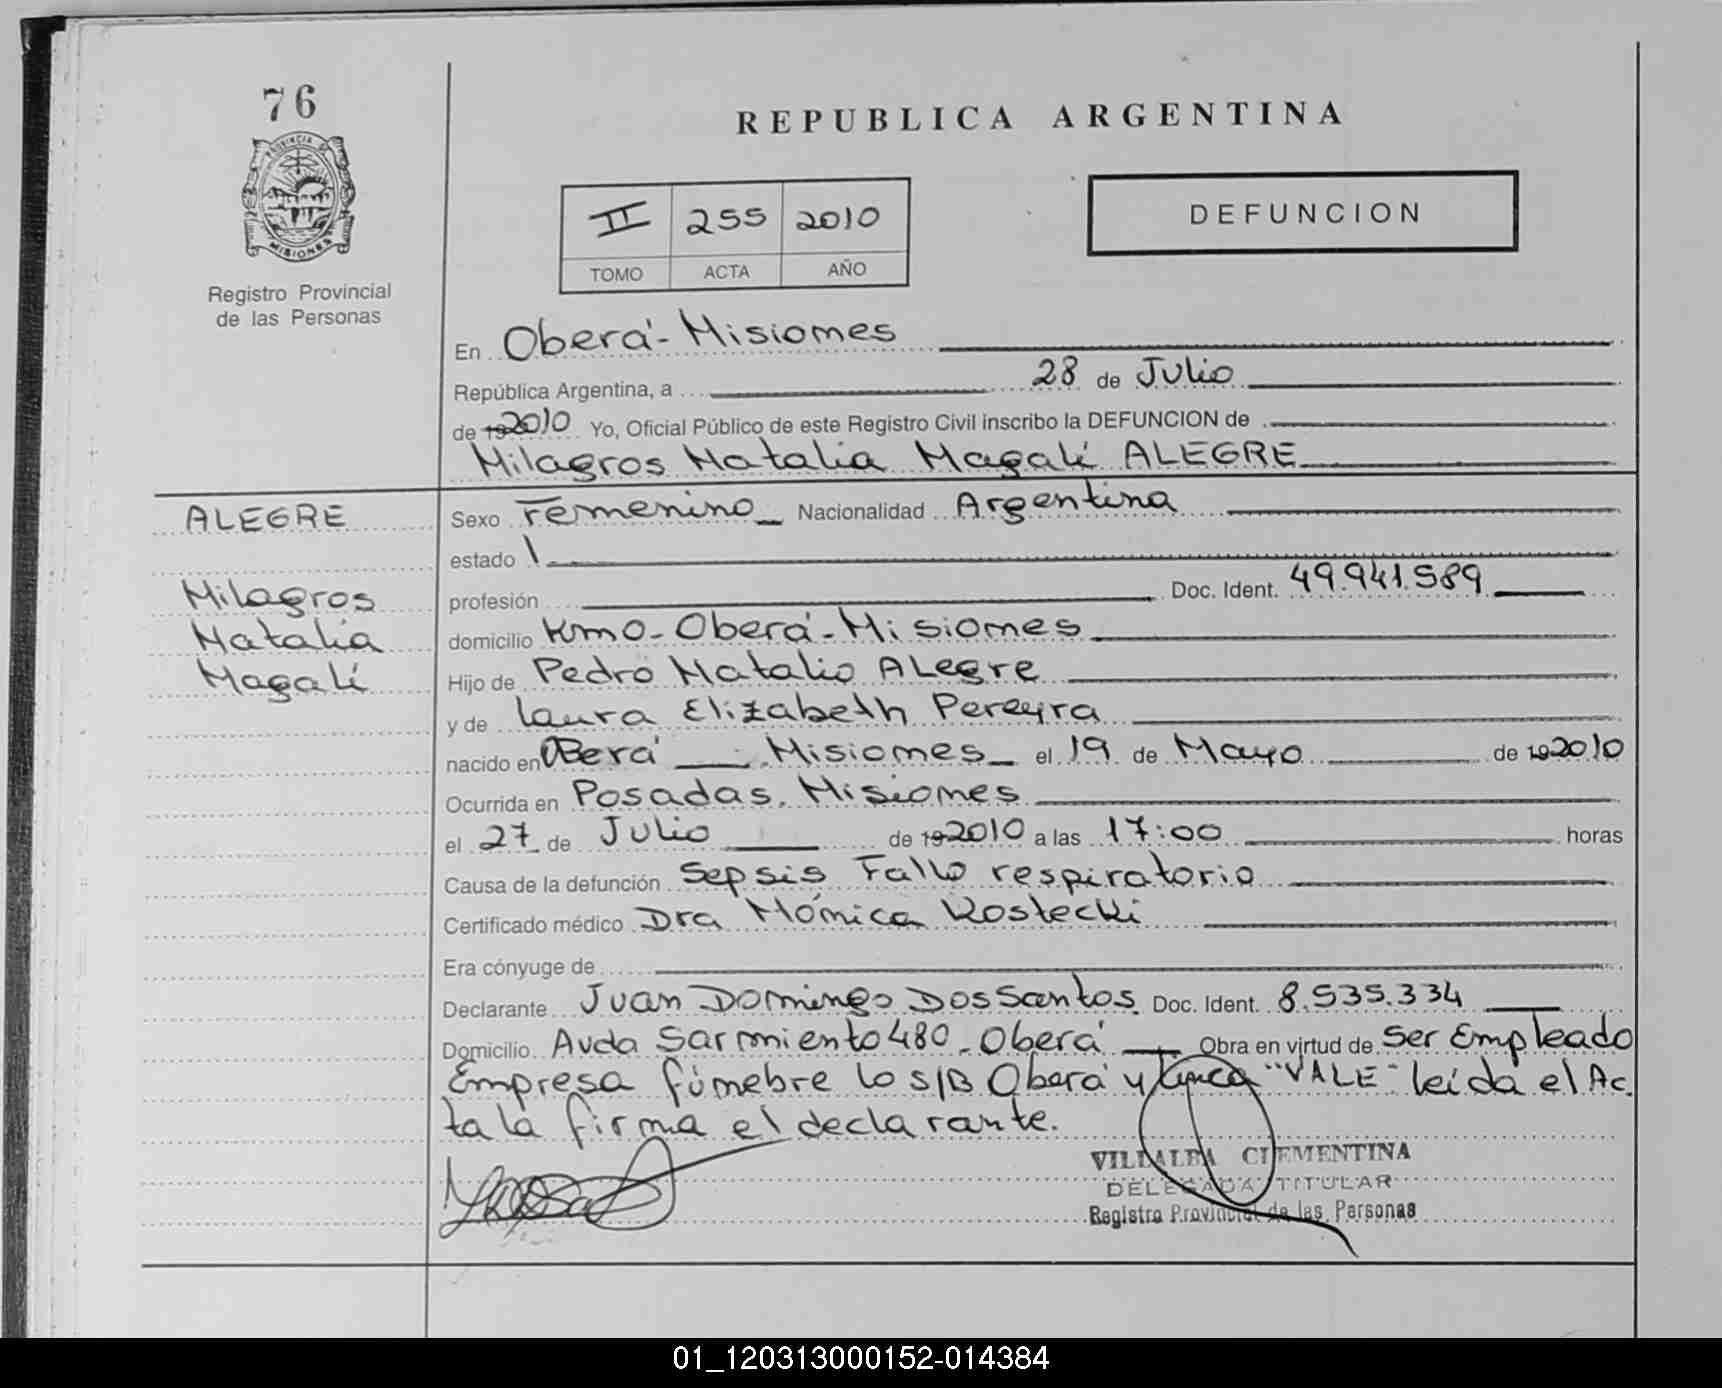 76
PROVINCIA DE
MISIONES
Registro Provincial
de las Personas
REPUBLICA ARGENTINA
II 255 2010
TOMO ACTA AÑO
DEFUNCION
En Oberá - Misiones
República Argentina, a 28 de Julio
de 19 2010 Yo, Oficial Público de este Registro Civil inscribo la DEFUNCION de
Milagros Natalia Magalí ALEGRE
ALEGRE
Milagros
Natalia
Magalí
Sexo Femenino Nacionalidad Argentina
estado
profesión Doc. Ident. 49.941.589
domicilio Km0 - Oberá - Misiones
Hijo de Pedro Natalio Alegre
y de Laura Elizabeth Pereyra
nacido en Oberá Misiones el 19 de Mayo de 19 2010
Ocurrida en Posadas. Misiones
el 27 de Julio de 19 2010 a las 17:00 horas
Causa de la defunción Sepsis Fallo respiratorio
Certificado médico Dra Mónica Kostecki
Era cónyuge de
Declarante Juan Domingo Dos Santos Doc. Ident. 8.535.334
Domicilio Avda Sarmiento 480 - Oberá Obra en virtud de Ser Empleado
Empresa fúnebre lo s/B Oberá y "VALE" leída el Ac
ta la firma el declarante.
VILLALBA CLEMENTINA
DELEGADA TITULAR
Registro Provincial de las Personas
01_120313000152-014384